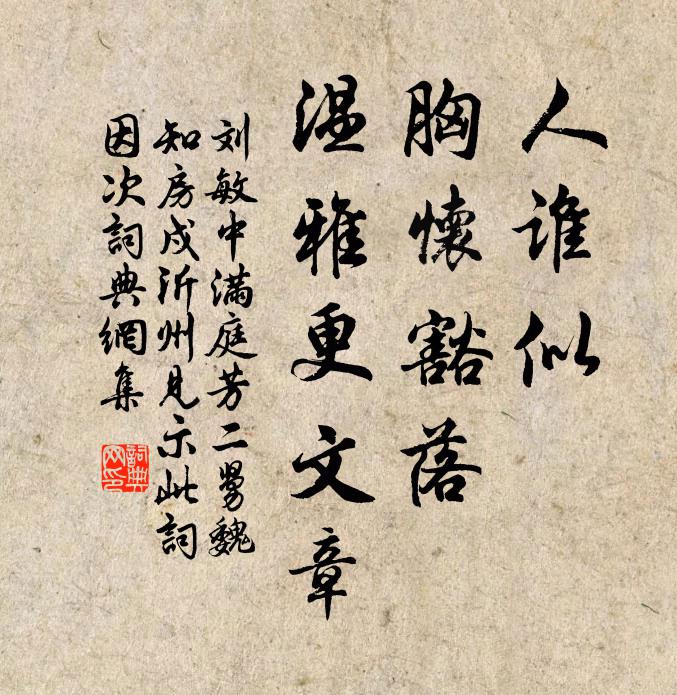 人谁似
胸懷豁落
温雅更文章
刘敏中满庭芳二舅魏
知房戍沂州見示此詞
因次詞典網集
詞典
网印